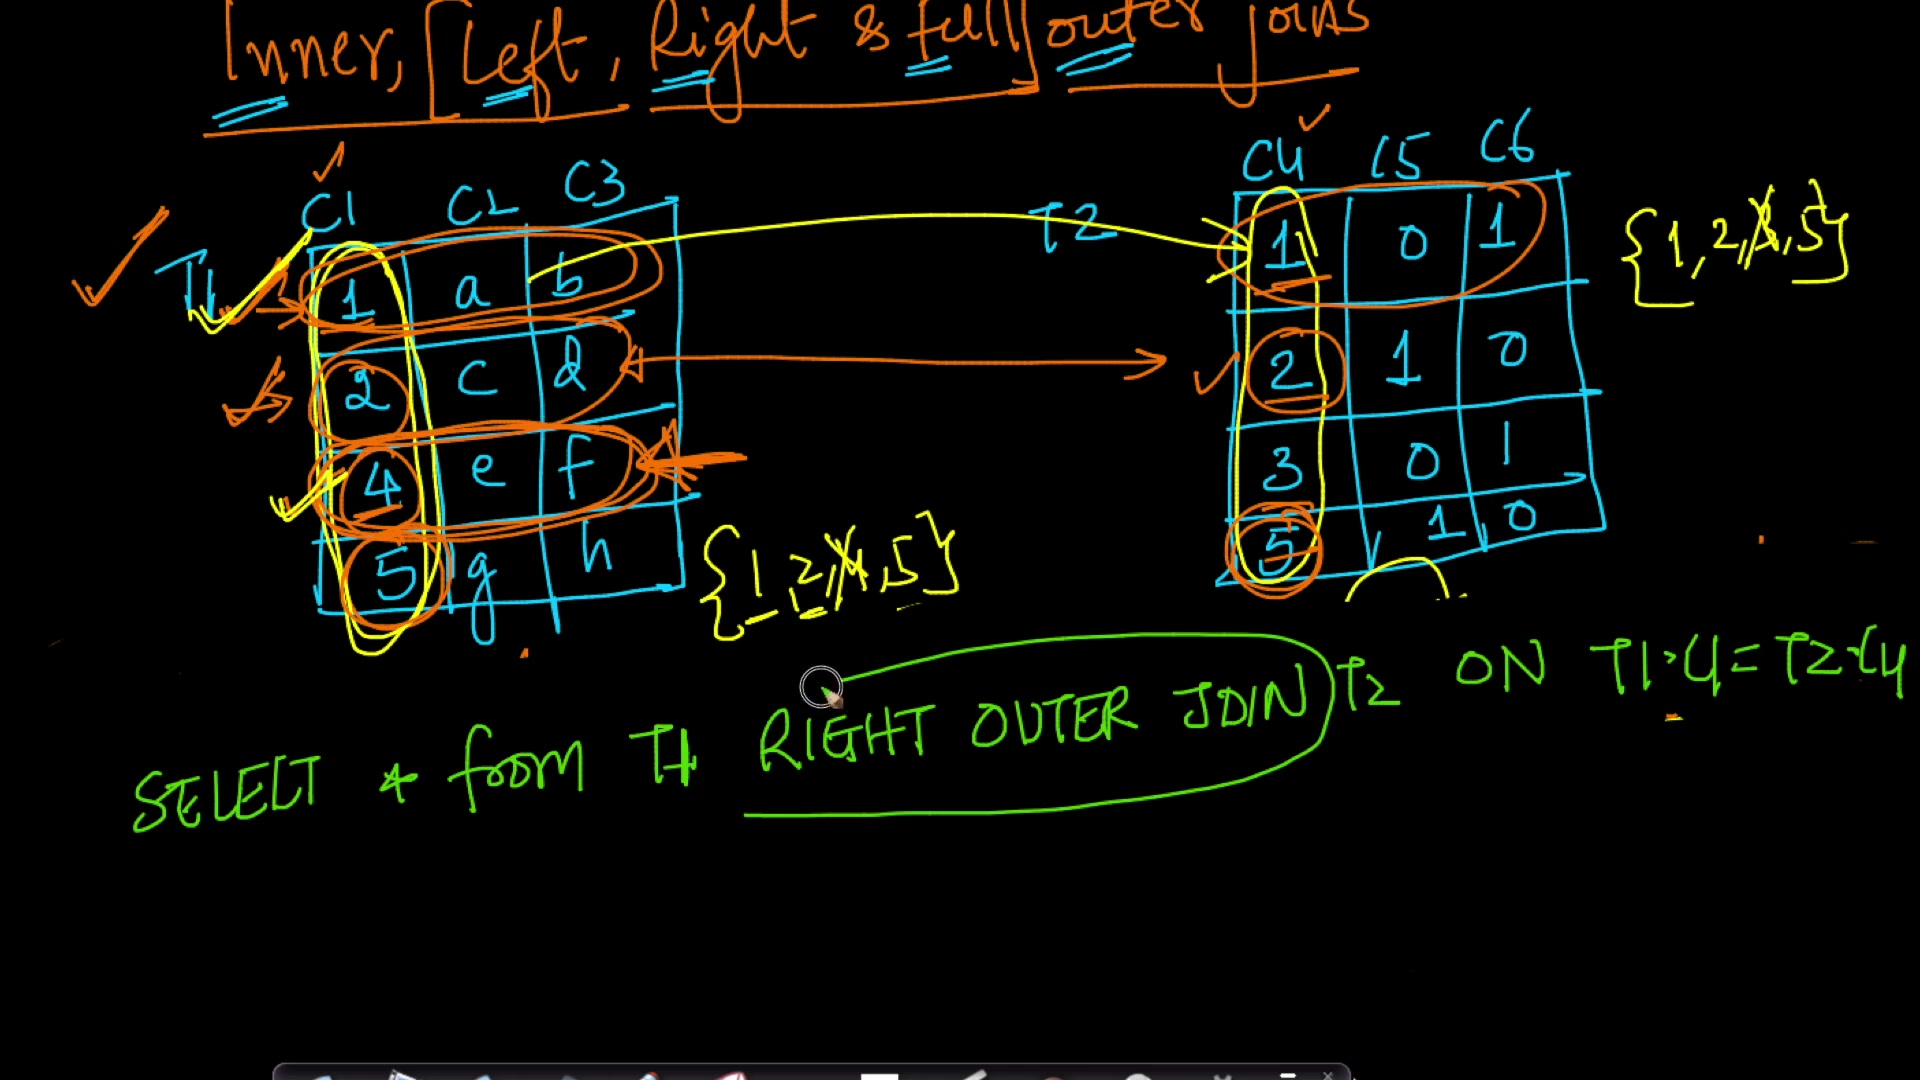 Inner, [Left, Right & full] outer joins
C1 C2 C3
T1
1 a b
2 c d
4 e f
5 g h
{1,2,4,5}
T2
C4 C5 C6
1 0 1
2 1 0
3 0 1
5 1 0
{1,2,3,5}
SELECT * from T1 RIGHT OUTER JOIN T2 ON T1.C1=T2.C4